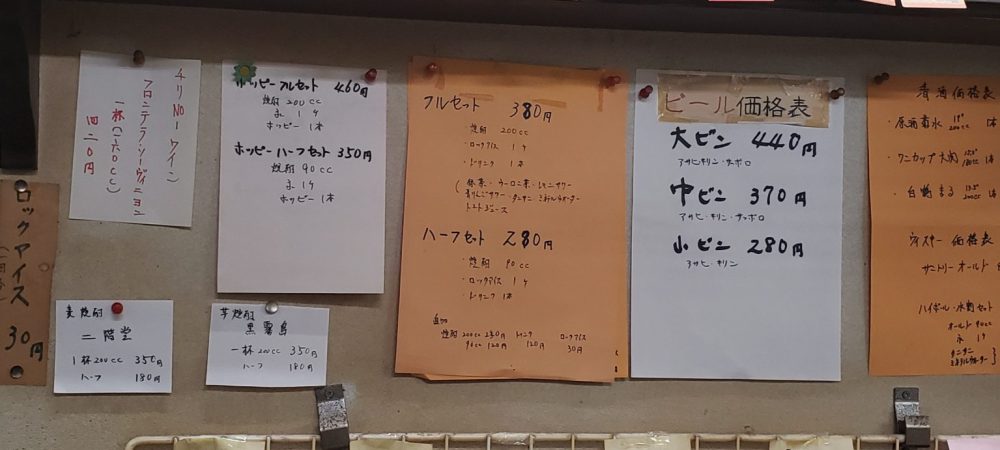 ロックアイス
30円
チリNO1ワイン
フロンテラ・ソーヴィニヨン
一杯(一六〇cc)
四二〇円
麦焼酎
二階堂
1杯200cc 350円
ハーフ 180円
ホッピーフルセット 460円
焼酎 200cc
氷 1ヶ
ホッピー 1本
ホッピーハーフセット 350円
焼酎 90cc
氷 1ヶ
ホッピー 1本
芋焼酎
黒霧島
一杯200cc 350円
ハーフ 180円
フルセット 380円
・焼酎 200cc
・ロックアイス 1ヶ
・ドリンク 1本
(緑茶・ウーロン茶・レモンサワー
青りんごサワー・タンサン・ミネラルウォーター
トマトジュース
ハーフセット 280円
・焼酎 90cc
・ロックアイス 1ヶ
・ドリンク 1本
焼酎 200cc 230円 ドリンク ロックアイス
90cc 120円 120円 30円
ビール価格表
大ビン 440円
アサヒ・キリン・サッポロ
中ビン 370円
アサヒ・キリン・サッポロ
小ビン 280円
アサヒ・キリン
清酒価格表
200cc
・ワンカップ大関
180cc
・白鶴まる
200cc
ウイスキー価格表
サントリーオールド
ハイボール・水割セット
オールド90cc
氷 1ケ
タンサン
ミネラルウォーター